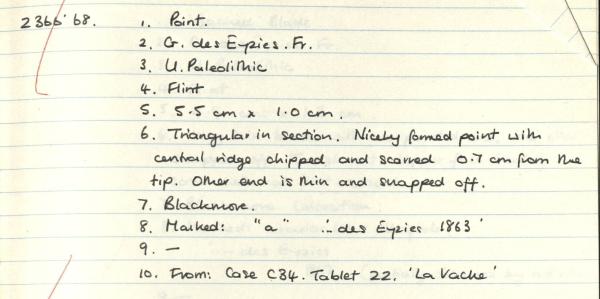 2366'68. 1. Point.
2. G. des Eyzies. Fr.
3. U. Paleolithic
4. Flint
5. 5.5 cm x 1.0 cm.
6. Triangular in section. Nicely formed point with
central ridge chipped and scarred 0.7 cm from the
tip. Other end is thin and snapped off.
7. Blackmore.
8. Marked: "a" '... des Eyzies 1863'
9. —
10. From: Case C84. Tablet 22. 'La Vache'